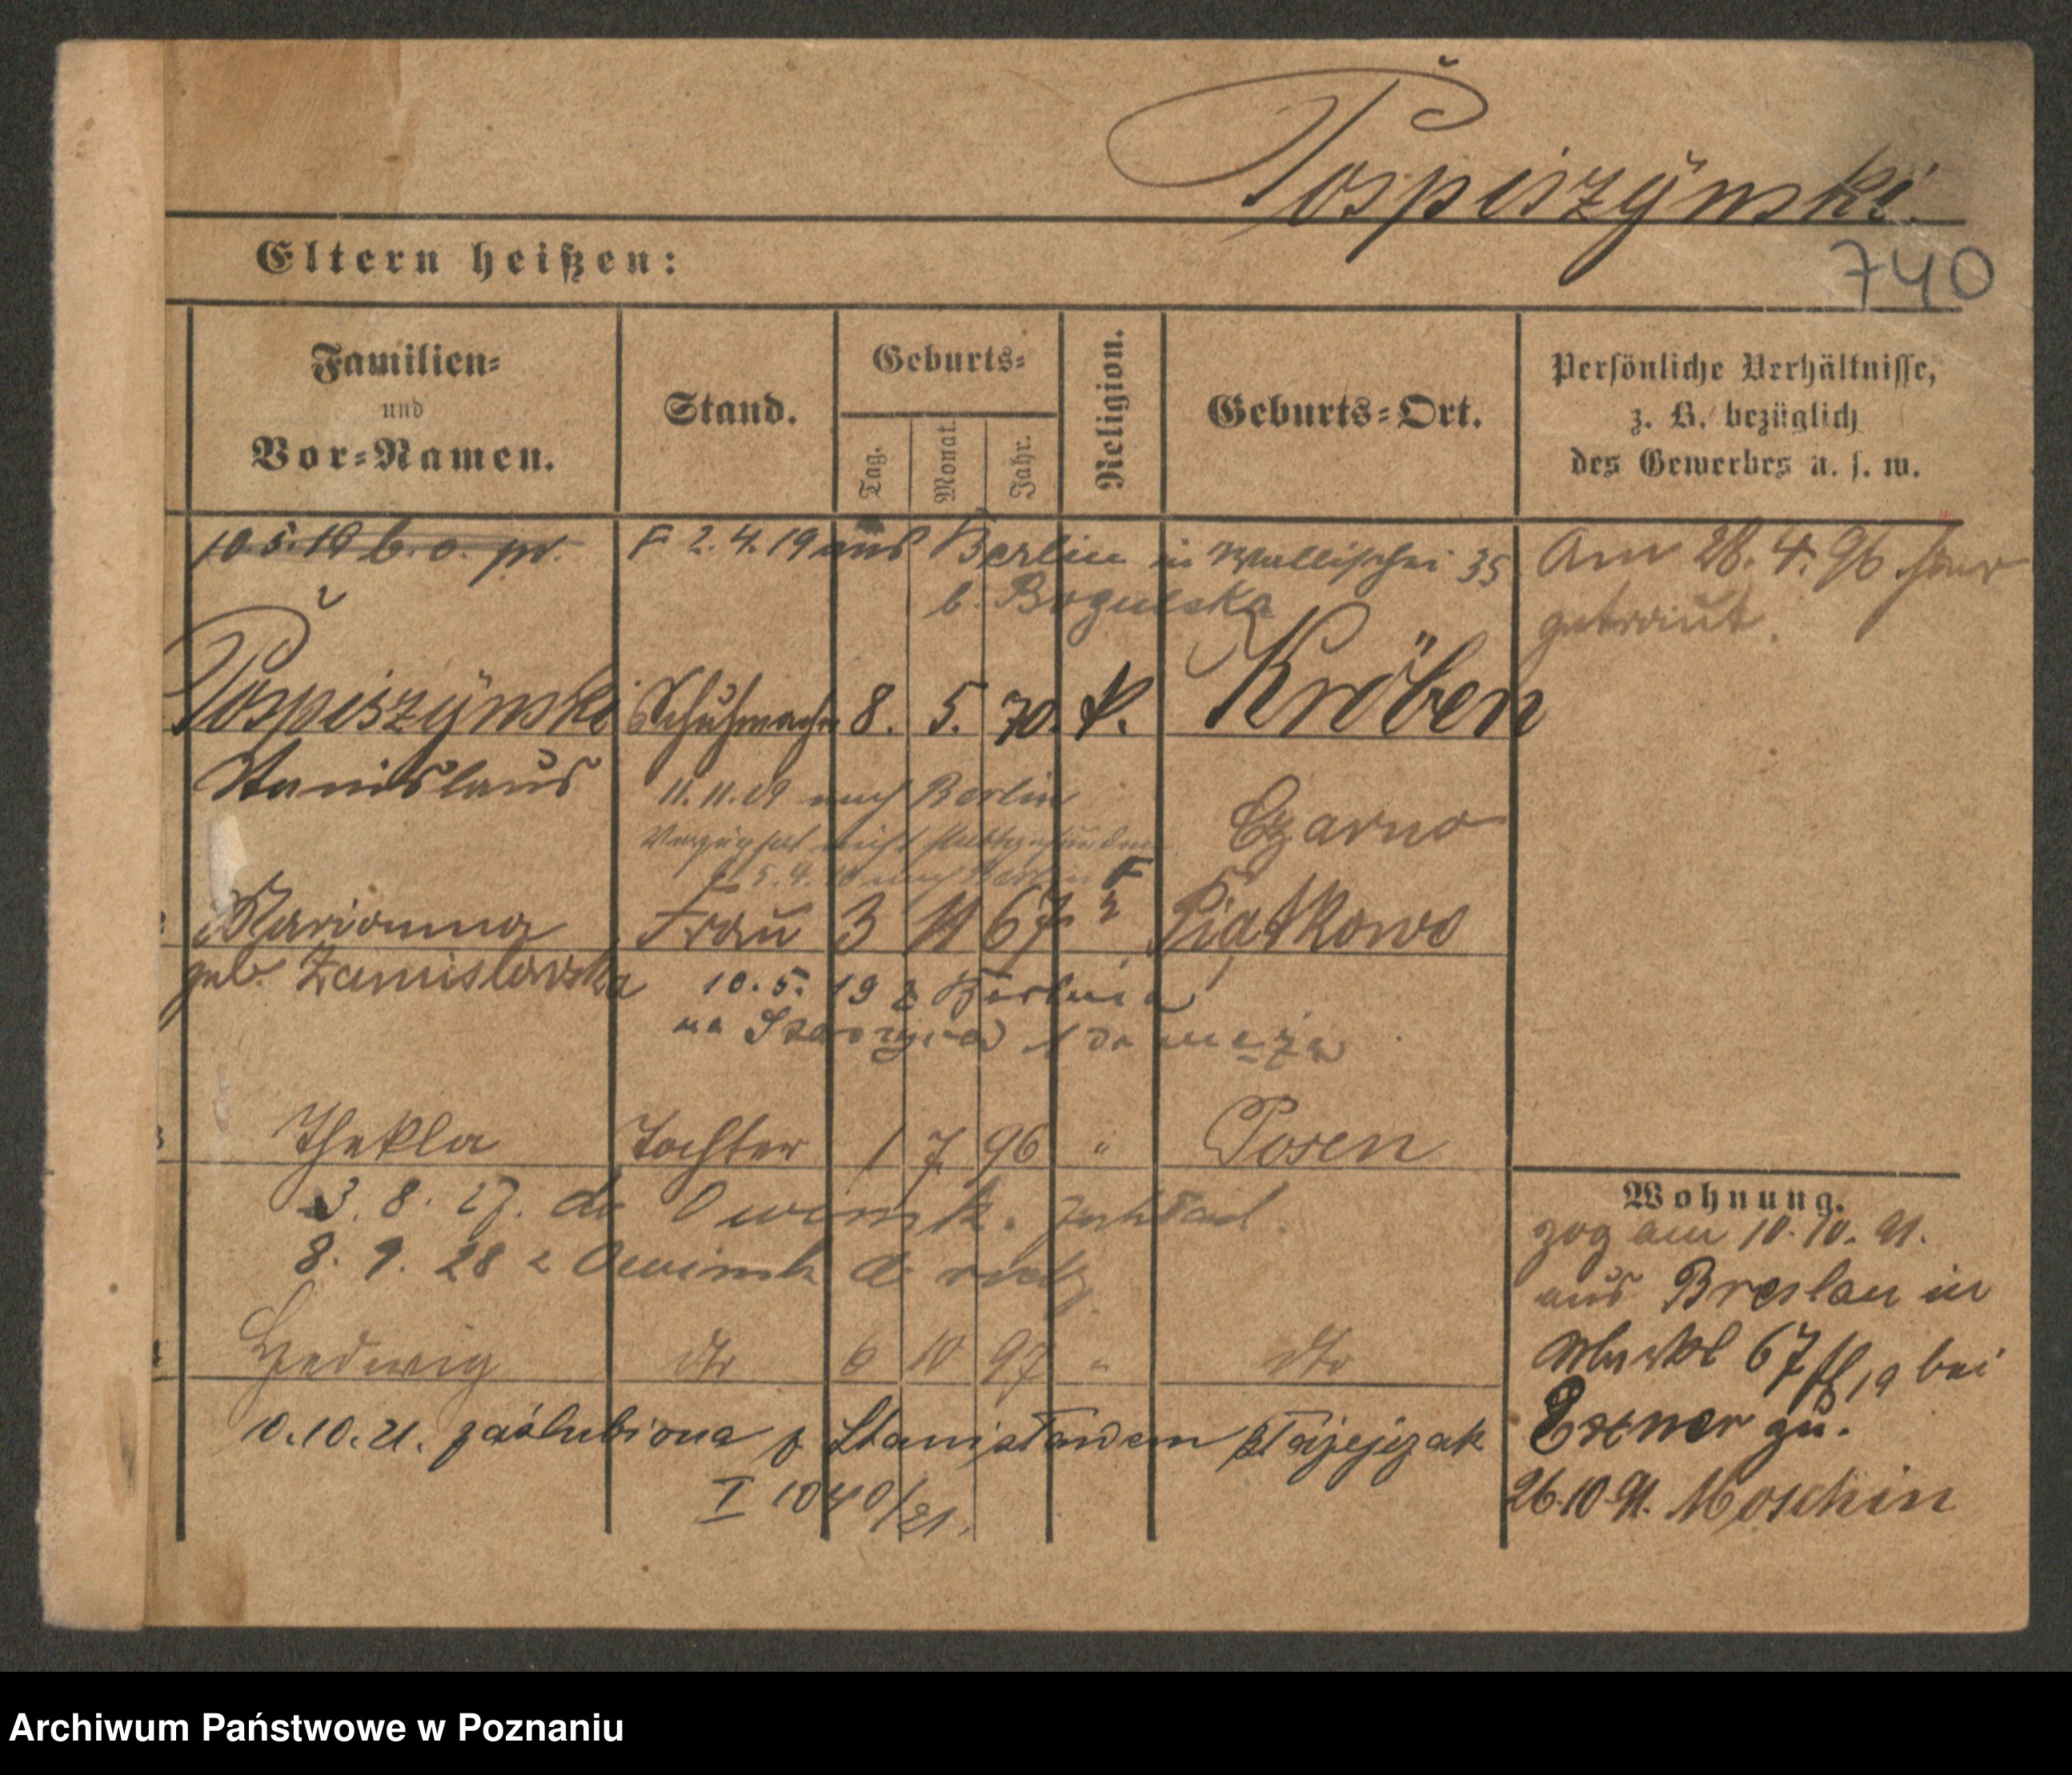 Pospiszÿnski.
740
Eltern heißen:
Familien=
und
Vor=Namen.
Stand.
Geburts=
Tag.
Monat.
Jahr.
Religion.
Geburts=Ort.
Persönliche Verhältnisse,
z. B. bezüglich
des Gewerbes u. s. w.
10 5. 19 b. o. pr. F 2. 4. 19 aus Berlin in Wallischei 35
b. Bogulska
Am 28. 4. 96 hier
getraut.
Pospiszÿnski Schuhmacher 8. 5. 70. k. Kröben
Stanislaus
11. 11. 09 nach Berlin
Verzug hat nicht stattgefunden
5. 4. nach Berlin F
Czarno
Marianna Frau 3 11 67 " Piątkowo
geb. Zamislowska
10. 5. 19 z Berlina
na do męża
Thekla Tochter 1 7 96 " Posen
3. 8. 27. do Owinsk.
8. 9. 28 z Owinsk do
Hedwig dto 6 10 97 " dto
10. 10. 21. zaślubiona z Stanisławem
I 1040/21.
Wohnung.
zog am 10. 10. 91.
aus Breslau in
67 19 bei
Exner zu.
26. 10. 91. Moschin
Archiwum Państwowe w Poznaniu